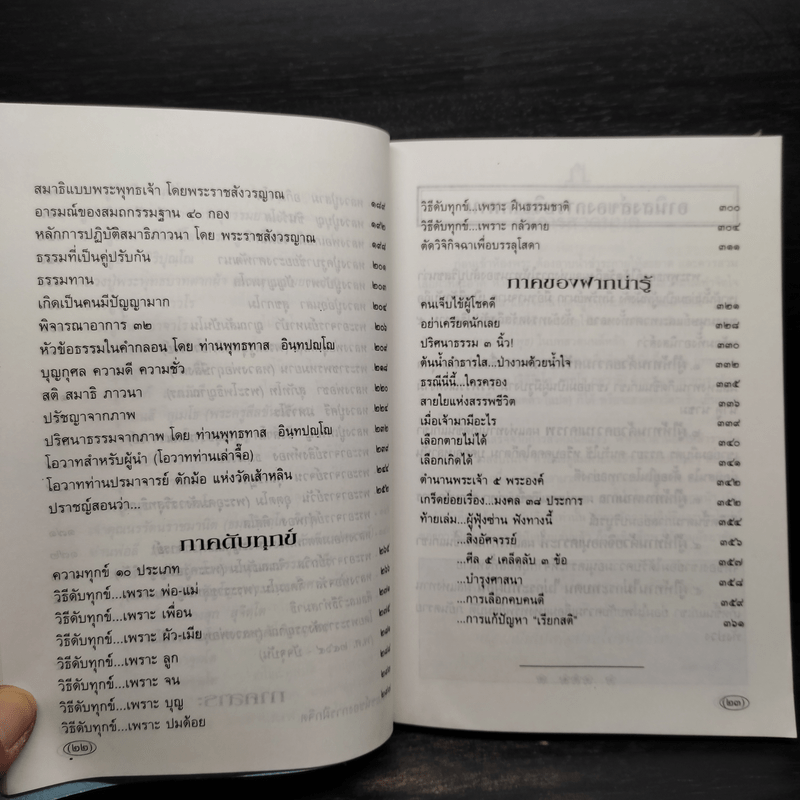 สมาธิแบบพระพุทธเจ้า โดยพระราชสังวรญาณ ๑๘๙
อารมณ์ของสมถกรรมฐาน ๔๐ กอง ๑๙๒
หลักการปฏิบัติสมาธิภาวนา โดย พระราชสังวรญาณ ๑๙๘
ธรรมที่เป็นคู่ปรับกัน ๒๐๑
ธรรมทาน ๒๐๑
เกิดเป็นคนมีปัญญามาก ๒๐๕
พิจารณาอาการ ๓๒
หัวข้อธรรมในคำกลอน โดย ท่านพุทธทาส อินฺทปญฺโญ
บุญกุศล ความดี ความชั่ว
สติ สมาธิ ภาวนา
ปรัชญาจากภาพ ๒๒๔
ปริศนาธรรมจากภาพ โดย ท่านพุทธทาส อินฺทปญฺโญ ๒๓๒
โอวาทสำหรับผู้นำ (โอวาทท่านเล่าจื๊อ)
โอวาทท่านปรมาจารย์ ตักม้อ แห่งวัดเส้าหลิน
ปราชญ์สอนว่า... ๒๕๒
ภาคดับทุกข์
ความทุกข์ ๑๐ ประเภท
วิธีดับทุกข์...เพราะ พ่อ-แม่
วิธีดับทุกข์...เพราะ เพื่อน
วิธีดับทุกข์...เพราะ ผัว-เมีย
วิธีดับทุกข์...เพราะ ลูก
วิธีดับทุกข์...เพราะ จน
วิธีดับทุกข์...เพราะ บุญ
วิธีดับทุกข์...เพราะ ปมด้อย
(๒๒)
วิธีดับทุกข์...เพราะ ฝืนธรรมชาติ ๓๐๐
วิธีดับทุกข์...เพราะ กลัวตาย ๓๐๔
ตัดวิจิกิจฉาเพื่อบรรลุโสดา ๓๑๑
ภาคของฝากน่ารู้
คนเจ็บไข้ผู้โชคดี ๓๒๑
อย่าเครียดนักเลย ๓๒๘
ปริศนาธรรม ๓ นิ้ว! ๓๓๐
ต้นน้ำลำธารใส...ป่างามด้วยน้ำใจ ๓๓๒
ธรณีนี่นี้...ใครครอง ๓๓๕
สายใยแห่งสรรพชีวิต ๓๓๖
เมื่อเจ้ามามีอะไร ๓๓๙
เลือกตายไม่ได้ ๓๔๐
เลือกเกิดได้ ๓๔๑
ตำนานพระเจ้า ๕ พระองค์ ๓๔๒
เกร็ดย่อยเรื่อง...มงคล ๓๘ ประการ ๓๕๒
ท้ายเล่ม...ผู้ฟุ้งซ่าน ฟังทางนี้ ๓๕๔
...สิ่งอัศจรรย์ ๓๕๖
...ศีล ๕ เคล็ดลับ ๓ ข้อ ๓๕๗
...บำรุงศาสนา ๓๕๘
...การเลือกคบคนดี ๓๕๙
...การแก้ปัญหา "เรียกสติ" ๓๖๑
(๒๓)